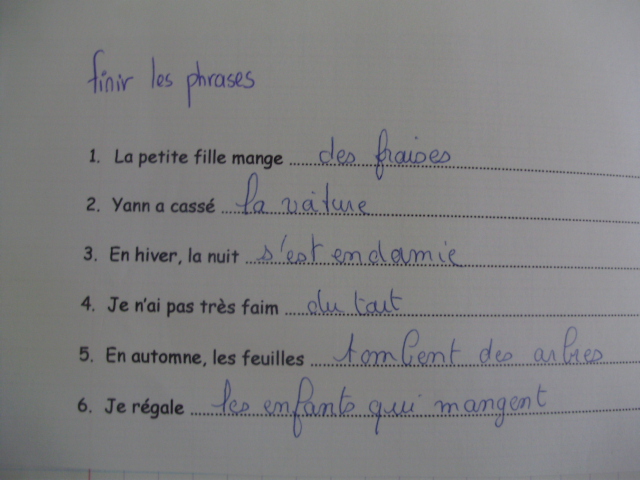 finir les phrases
1. La petite fille mange ..... des fraises
2. Yann a cassé ..... la voiture
3. En hiver, la nuit ..... s'est endamie
4. Je n'ai pas très faim ..... du tout
5. En automne, les feuilles ..... tombent des arbres
6. Je régale ..... les enfants qui mangent